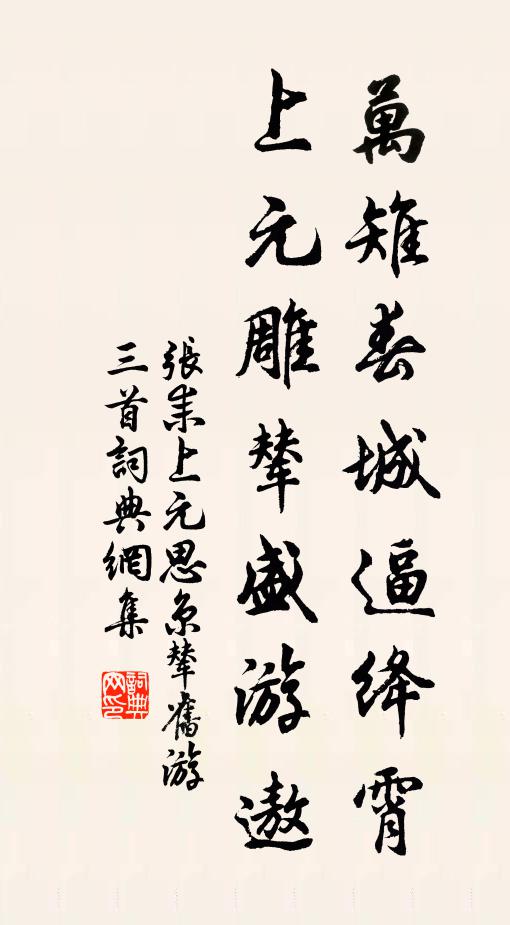 萬雉春城逼绛霄
上元雕輦盛游遨
張耒上元思京輦舊游
三首詞典網集
詞典網印